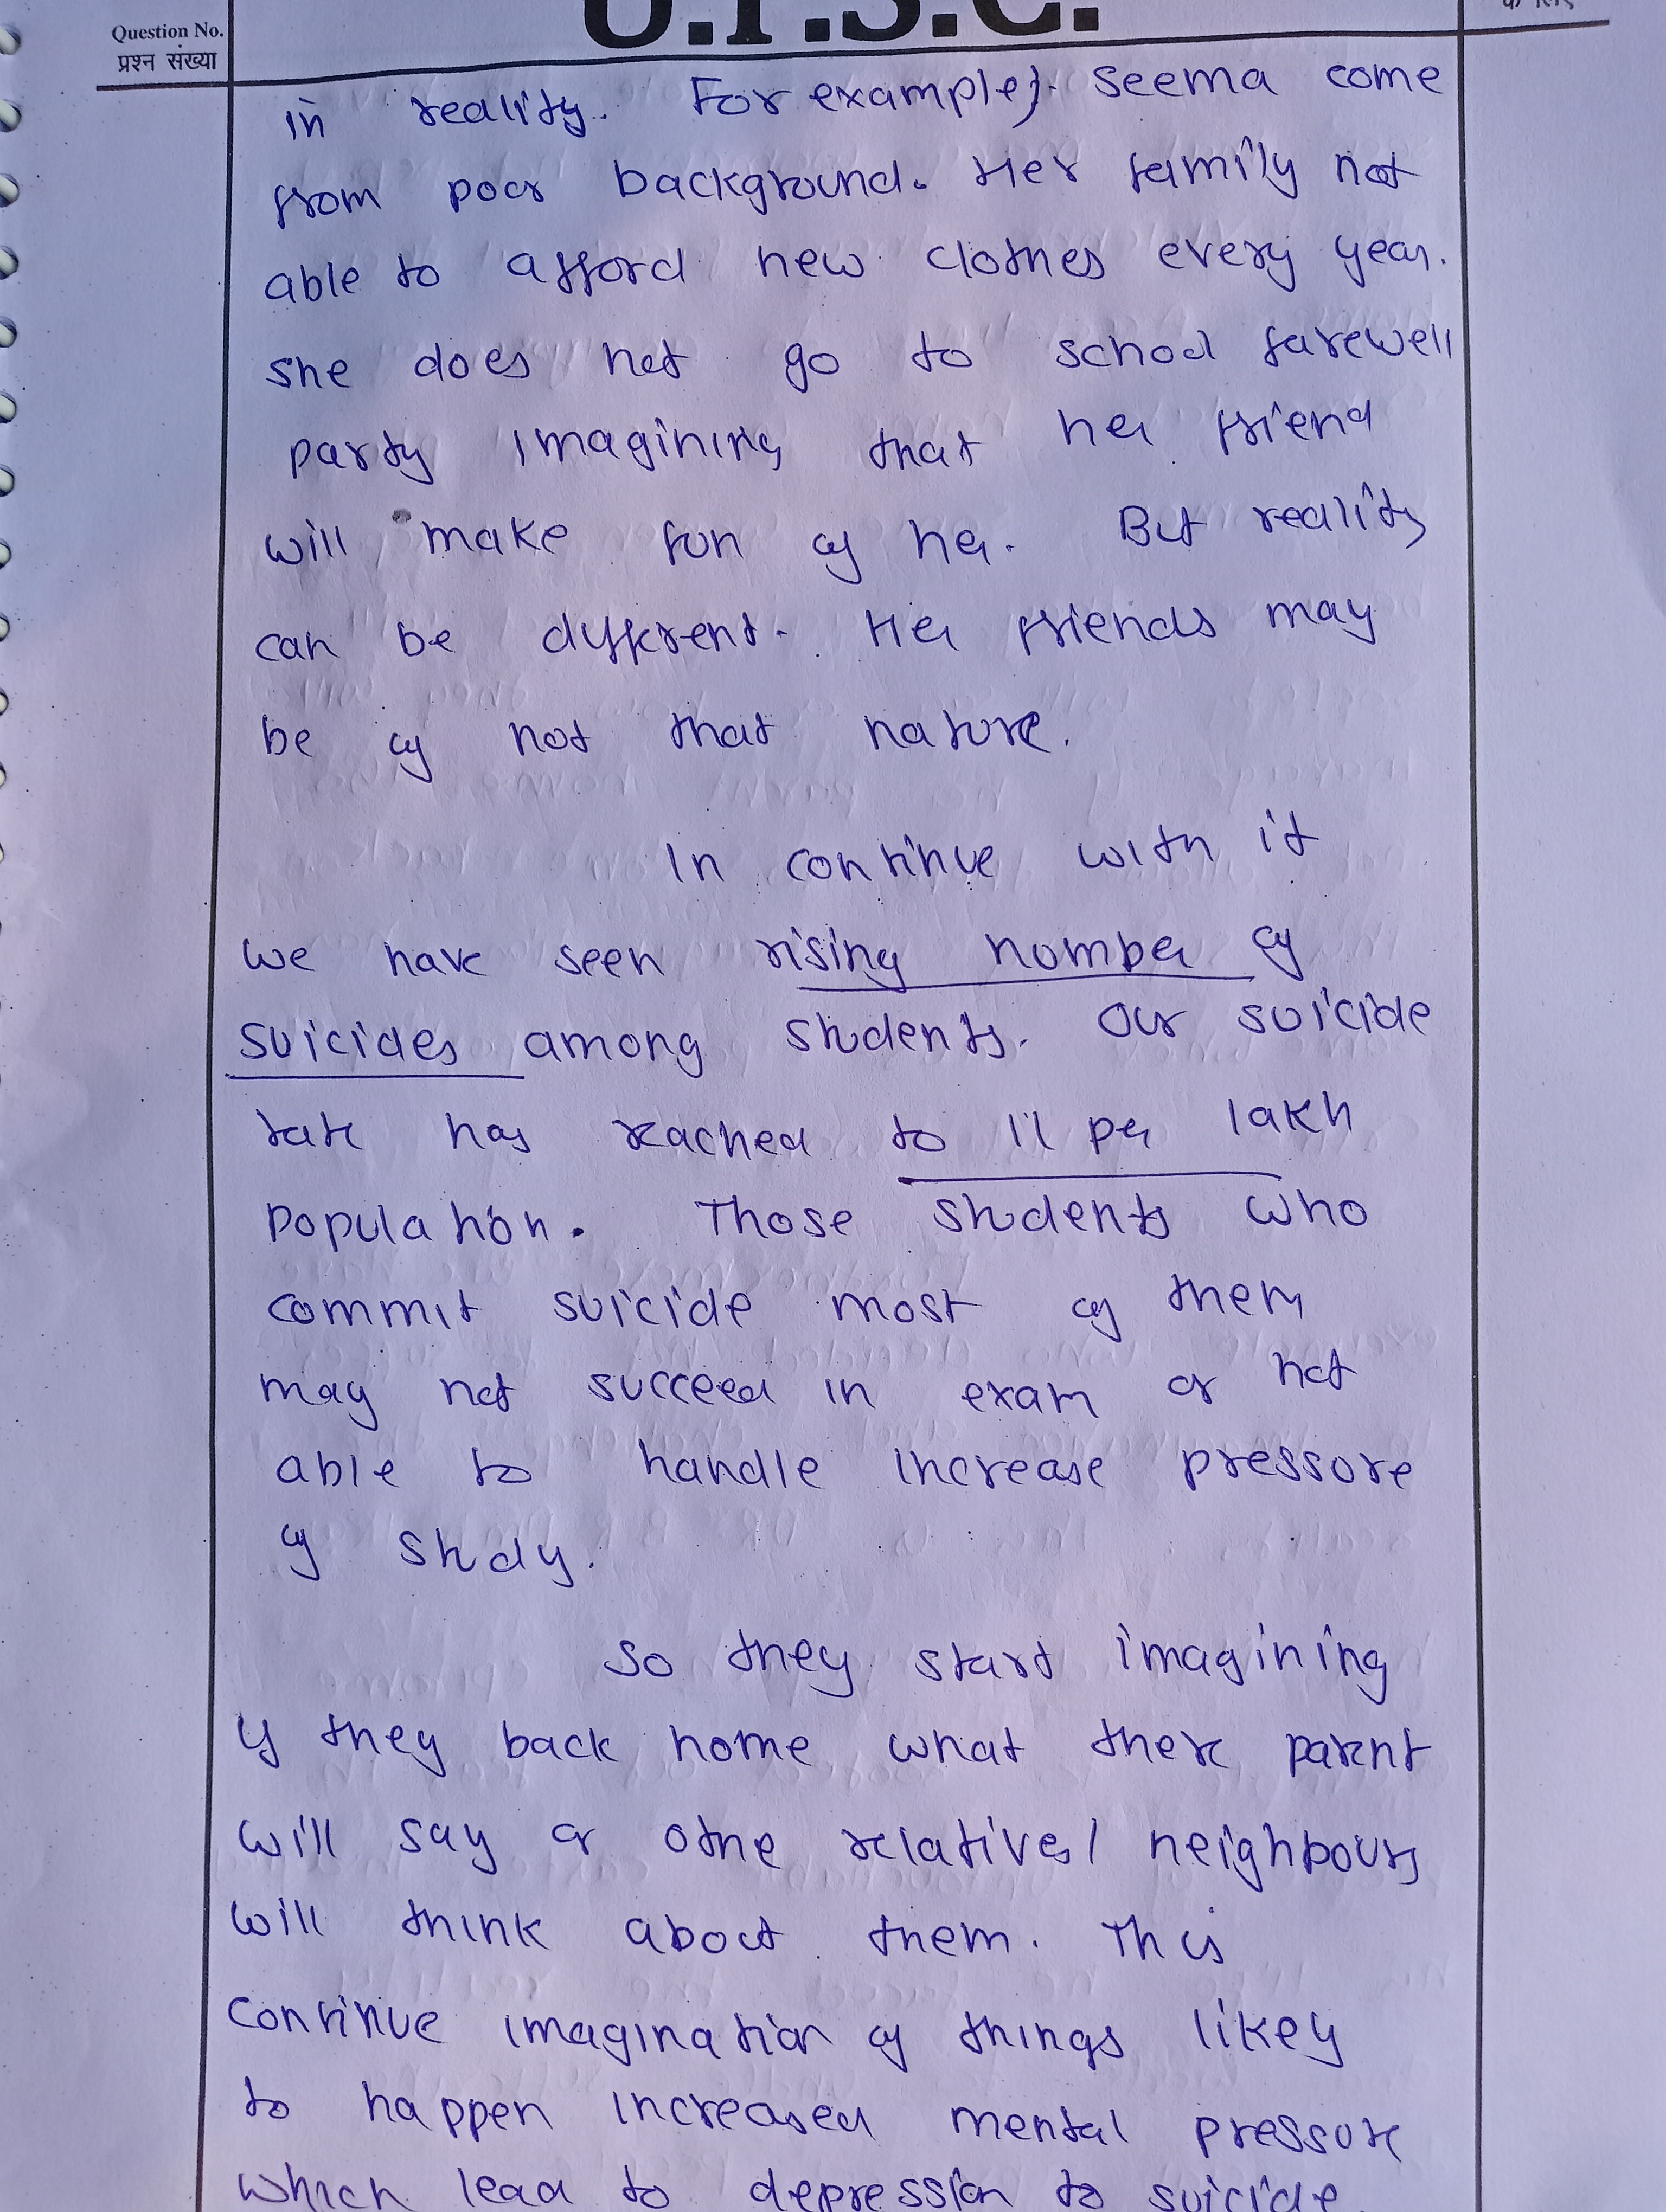 Question No.
प्रश्न संख्या
U.P.S.C.
in reality. For example, Seema come
from poor background. Her family not
able to afford new clothes every year.
she does not go to school farewell
party imagining that her friend
will make fun of her. But reality
can be different. Her friends may
be of not that nature.
In continue with it
we have seen rising number of
suicides among students. Our suicide
rate has reached to 11 per lakh
population. Those students who
commit suicide most of them
may not succeed in exam or not
able to handle increase pressure
of study.
So they start imagining
if they back home what there parent
will say or othe relatives/ neighbours
will think about them. This
continue imagination of things likey
to happen increased mental pressure
which lead to depression to suicide.